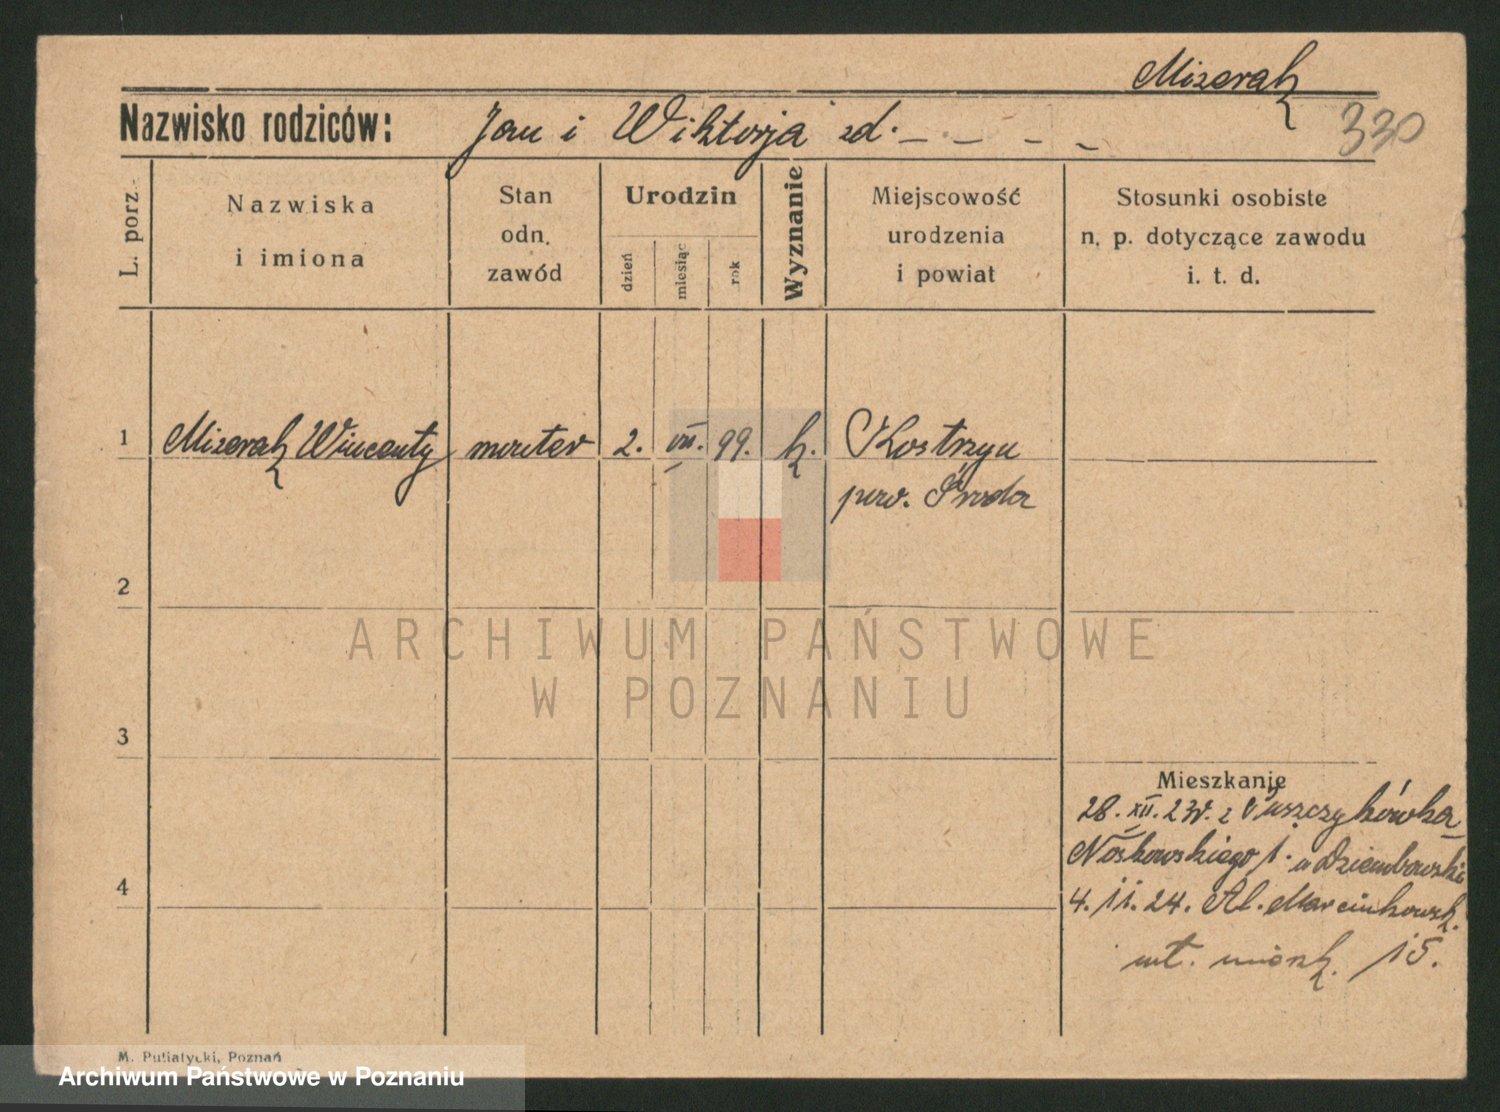 Mizerak
Nazwisko rodziców: Jan i Wiktorja zd. – – – –
330
L. porz.
Nazwiska
i imiona
Stan
odn.
zawód
Urodzin
dzień
miesiąc
rok
Wyznanie
Miejscowość
urodzenia
i powiat
Stosunki osobiste
n. p. dotyczące zawodu
i. t. d.
1 Mizerak Wincenty monter 2. VII. 99. k. Kostrzyn
pow. Środa
2
ARCHIWUM PAŃSTWOWE
W POZNANIU
3
Mieszkanie
28. XII. 23r. z Puszczykówka
Noskowskiego 1. u Dziembowski
4
4. II. 24. Al. Marcinkowsk.
15.
M. Putiatycki, Poznań
Archiwum Państwowe w Poznaniu